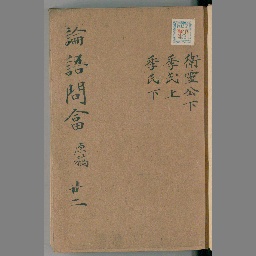 衛靈公下
季氏上
季氏下
論語問會 原稿 廿二